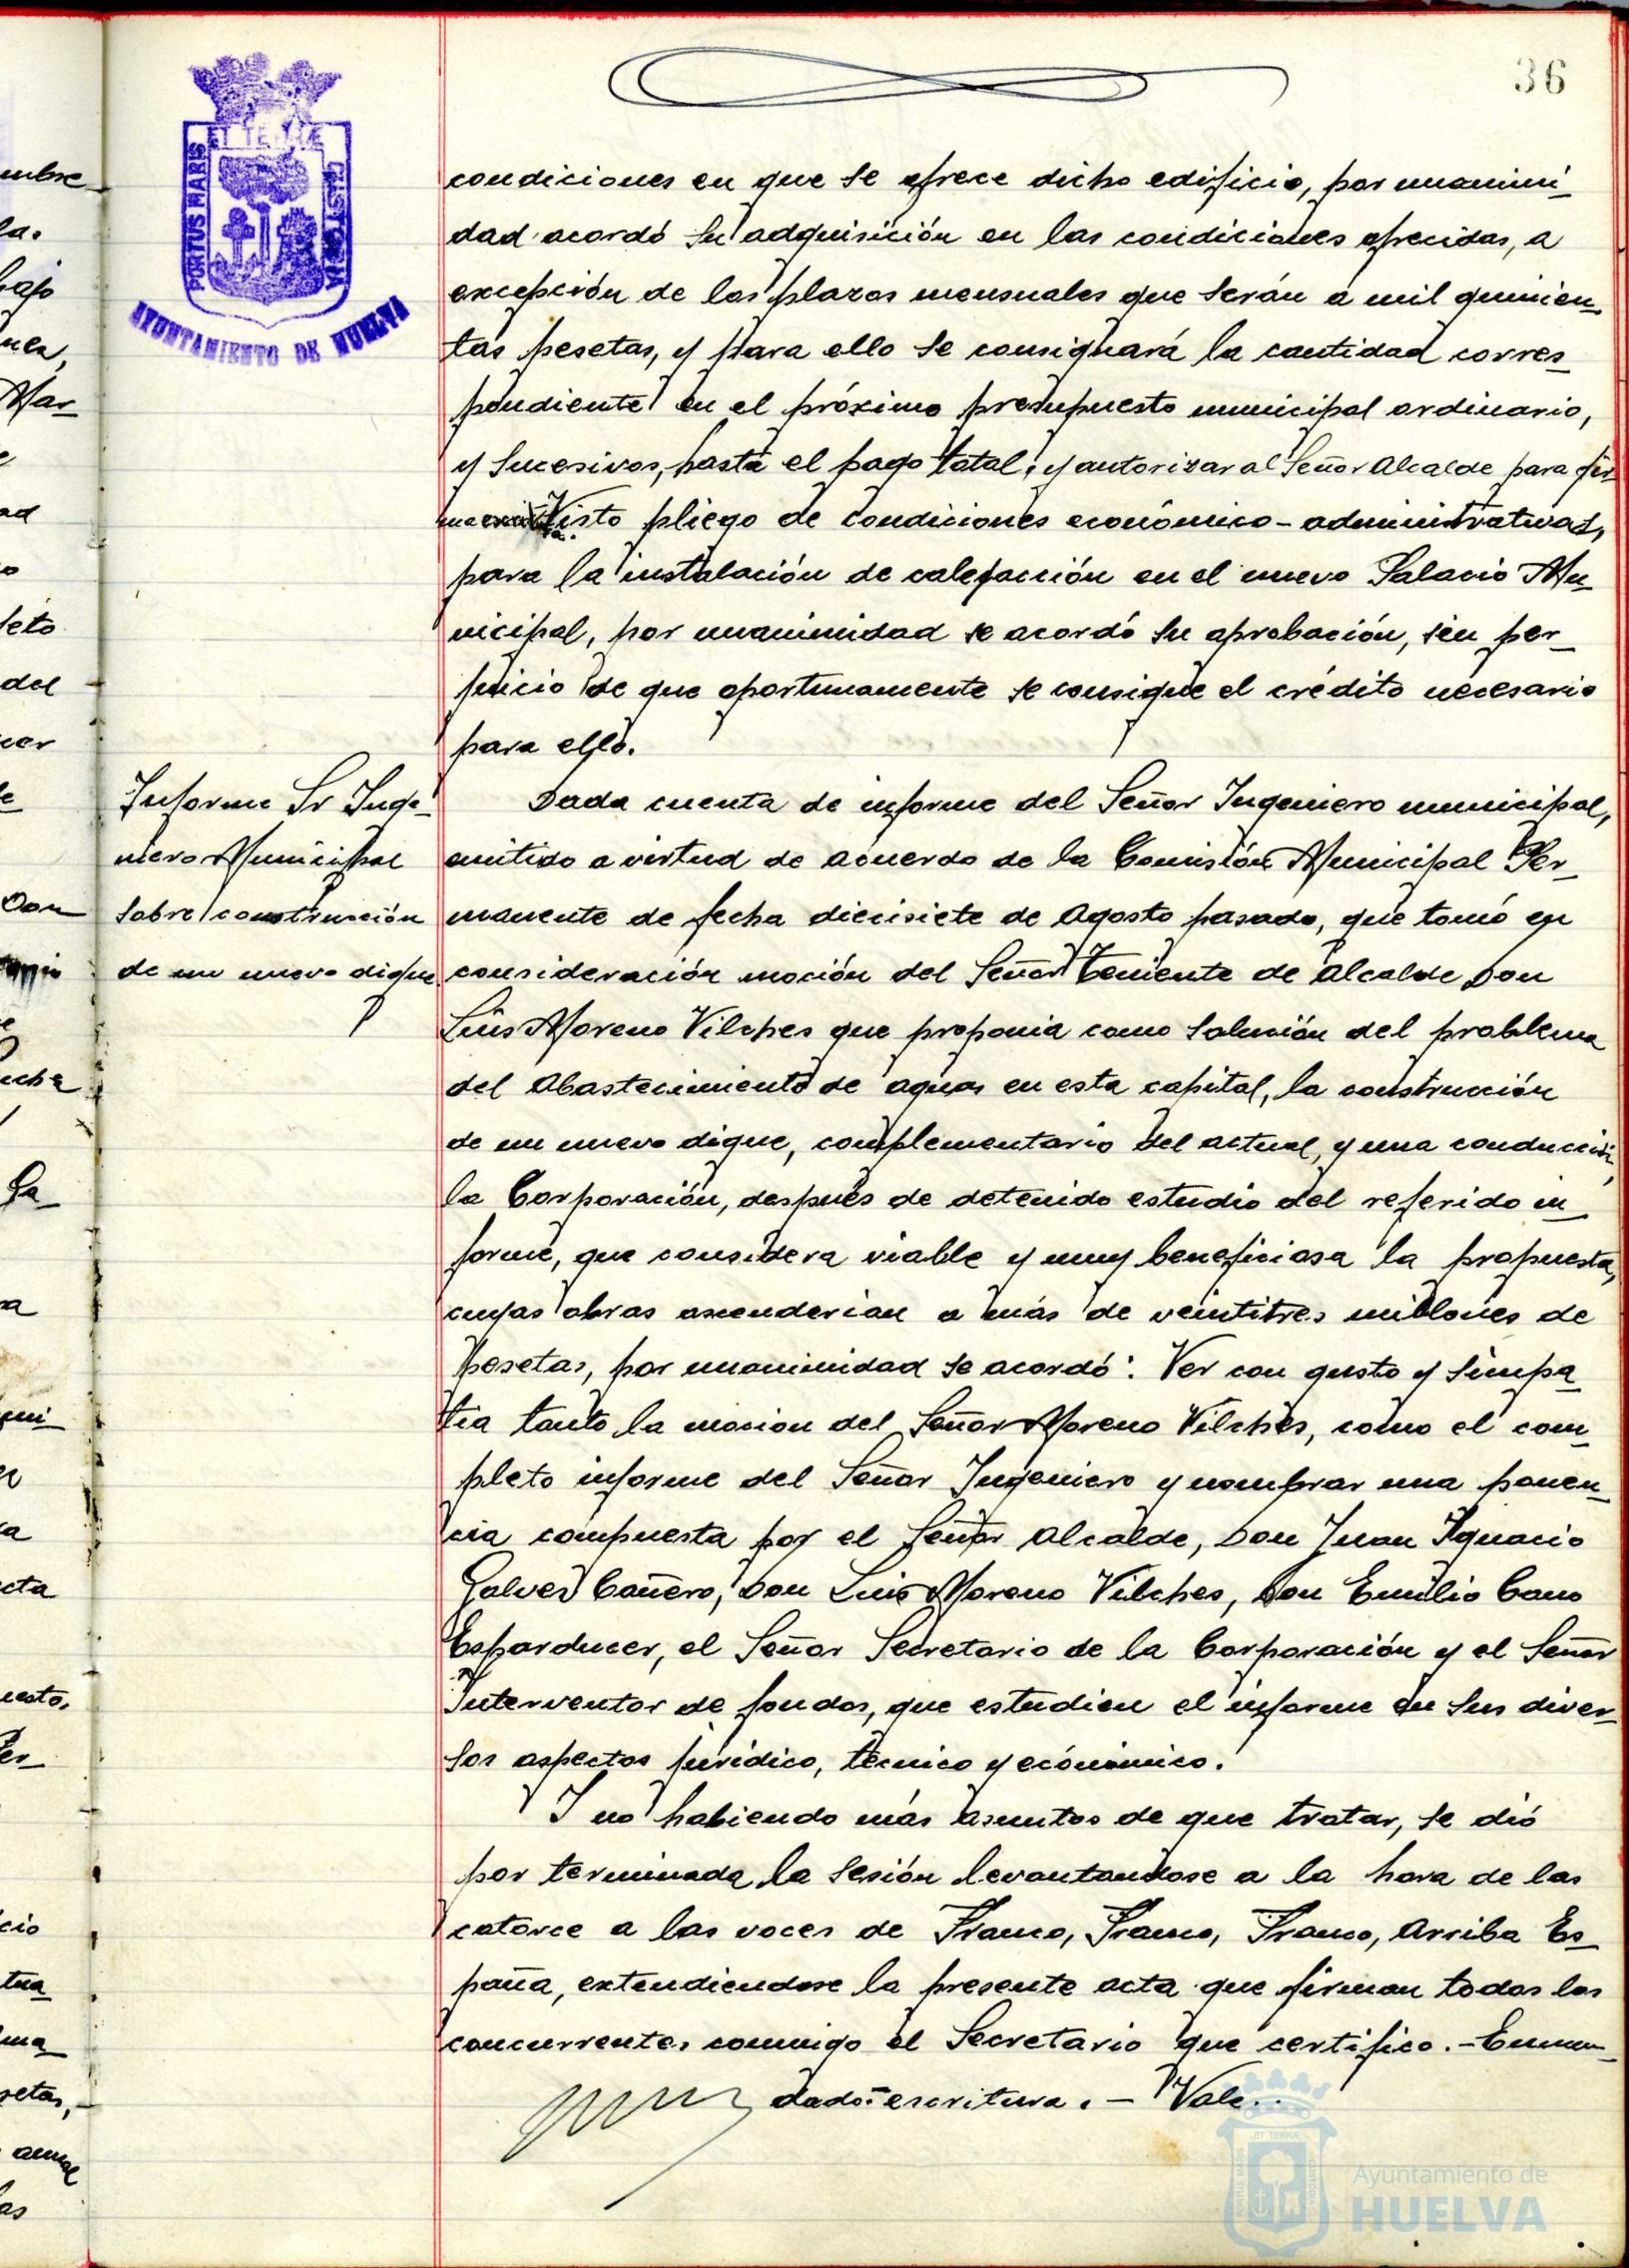 36
PORTUS MARIS
ET TERRÆ
CUSTODIA
AYUNTAMIENTO DE HUELVA
condiciones en que se ofrece dicho edificio, por unanimi-
dad acordó su adquisición en las condiciones ofrecidas, a
excepción de los plazos mensuales que serán a mil quinien-
tas pesetas, y para ello se consignará la cantidad corres-
pondiente en el próximo presupuesto municipal ordinario,
y sucesivos, hasta el pago total; y autorizar al Señor Alcalde para fir-
Visto pliego de condiciones económico-administrativas,
para la instalación de calefacción en el nuevo Palacio Mu-
nicipal, por unanimidad se acordó su aprobación, sin per-
juicio de que oportunamente se consigne el crédito necesario
para ello.
Informe Sr Inge-
niero Municipal
sobre construcción
de un nuevo dique
Dada cuenta de informe del Señor Ingeniero municipal,
emitido a virtud de acuerdo de la Comisión Municipal Per-
manente de fecha diecisiete de Agosto pasado, que tomó en
consideración moción del Señor Teniente de Alcalde Don
Luis Moreno Vilches que proponia como solución del problema
del Abastecimiento de aguas en esta capital, la construcción
de un nuevo dique, complementario del actual, y una conducción,
la Corporación, después de detenido estudio del referido in-
forme, que considera viable y muy beneficiosa la propuesta,
cuyas obras ascenderian a más de veintitres millones de
pesetas, por unanimidad se acordó: Ver con gusto y simpa-
tia tanto la mocion del Señor Moreno Vilches, como el com-
pleto informe del Señor Ingeniero y nombrar una ponen-
cia compuesta por el Señor Alcalde, Don Juan Ignacio
Galvez Cañero, Don Luis Moreno Vilches, Don Emilio Cano
Esparducer, el Señor Secretario de la Corporación y el Señor
Interventor de fondos, que estudien el informe en sus diver-
sos aspectos jurídico, técnico y económico.
Y no habiendo más asuntos de que tratar, se dió
por terminada la sesión levantandose a la hora de las
catorce a las voces de Franco, Franco, Franco, Arriba Es-
paña, extendiendose la presente acta que firman todos los
concurrentes conmigo el Secretario que certifico.-Enmen-
dado: escritura. - Vale.
Ayuntamiento de
HUELVA